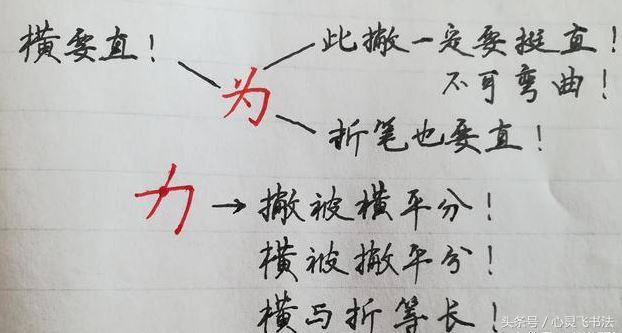 横要直！
此撇一定要挺直！
不可弯曲！
为
折笔也要直！
力→撇被横平分！
横被撇平分！
横与折等长！
头条号／心灵飞书法